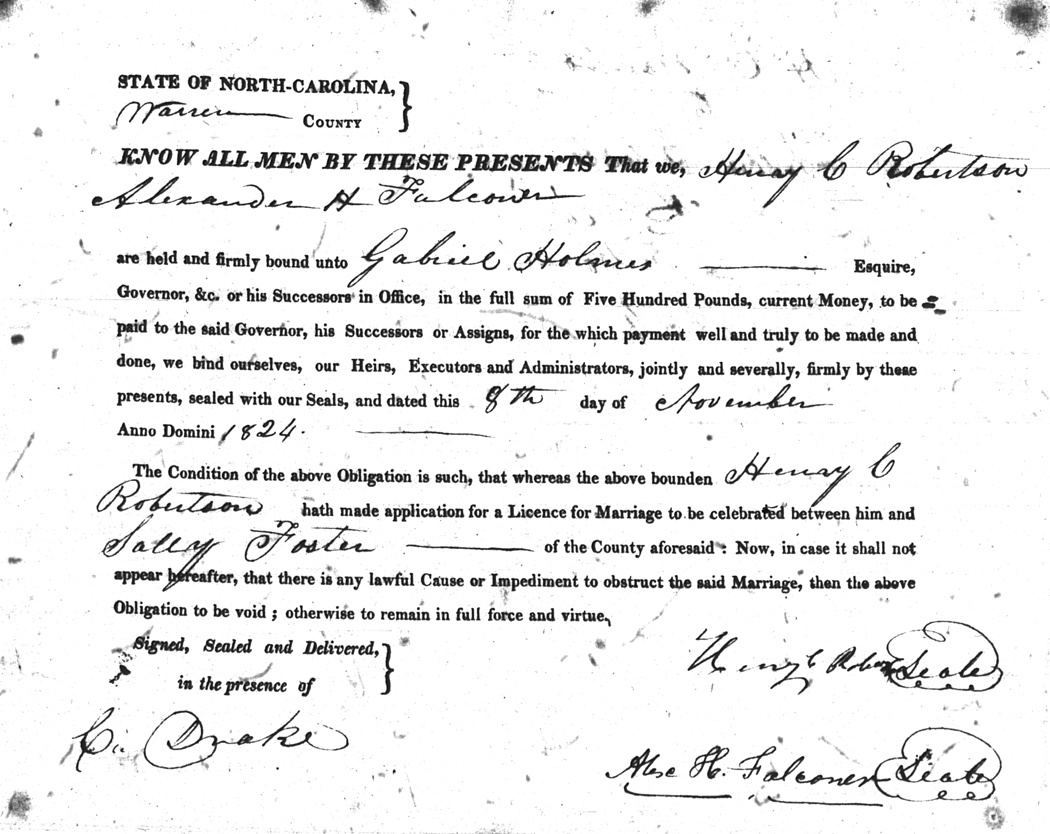 STATE OF NORTH-CAROLINA,
Warren COUNTY
KNOW ALL MEN BY THESE PRESENTS That we, Henry C Robertson
Alexander H Falconer
are held and firmly bound unto Gabriel Holmes Esquire,
Governor, &c. or his Successors in Office, in the full sum of Five Hundred Pounds, current Money, to be
paid to the said Governor, his Successors or Assigns, for the which payment well and truly to be made and
done, we bind ourselves, our Heirs, Executors and Administrators, jointly and severally, firmly by these
presents, sealed with our Seals, and dated this 8th day of November
Anno Domini 1824.
The Condition of the above Obligation is such, that whereas the above bounden Henry C
Robertson hath made application for a Licence for Marriage to be celebrated between him and
Sally Foster of the County aforesaid: Now, in case it shall not
appear hereafter, that there is any lawful Cause or Impediment to obstruct the said Marriage, then the above
Obligation to be void; otherwise to remain in full force and virtue.
Signed, Sealed and Delivered,
in the presence of
Henry C Seale
C. Drake
Alex H. Falconer Seale